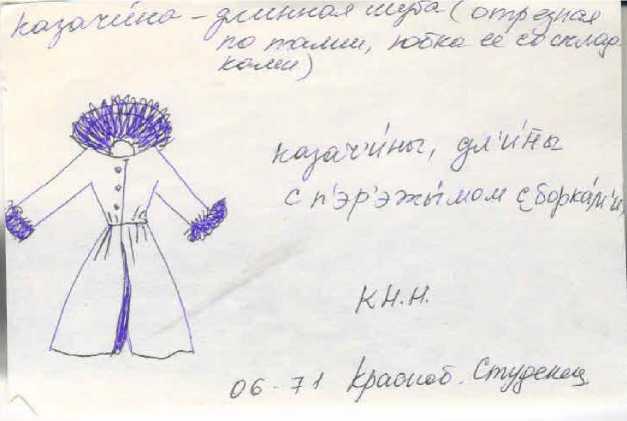 казачи́на – длинная шуба (отрезная
по талии, юбка ее со склад-
ками)
казач'и́ны, дл'и́ны
с п'эр'эжы́мом с борка́м'и,
К Н.Н.
06-71 Красноб. Студенец